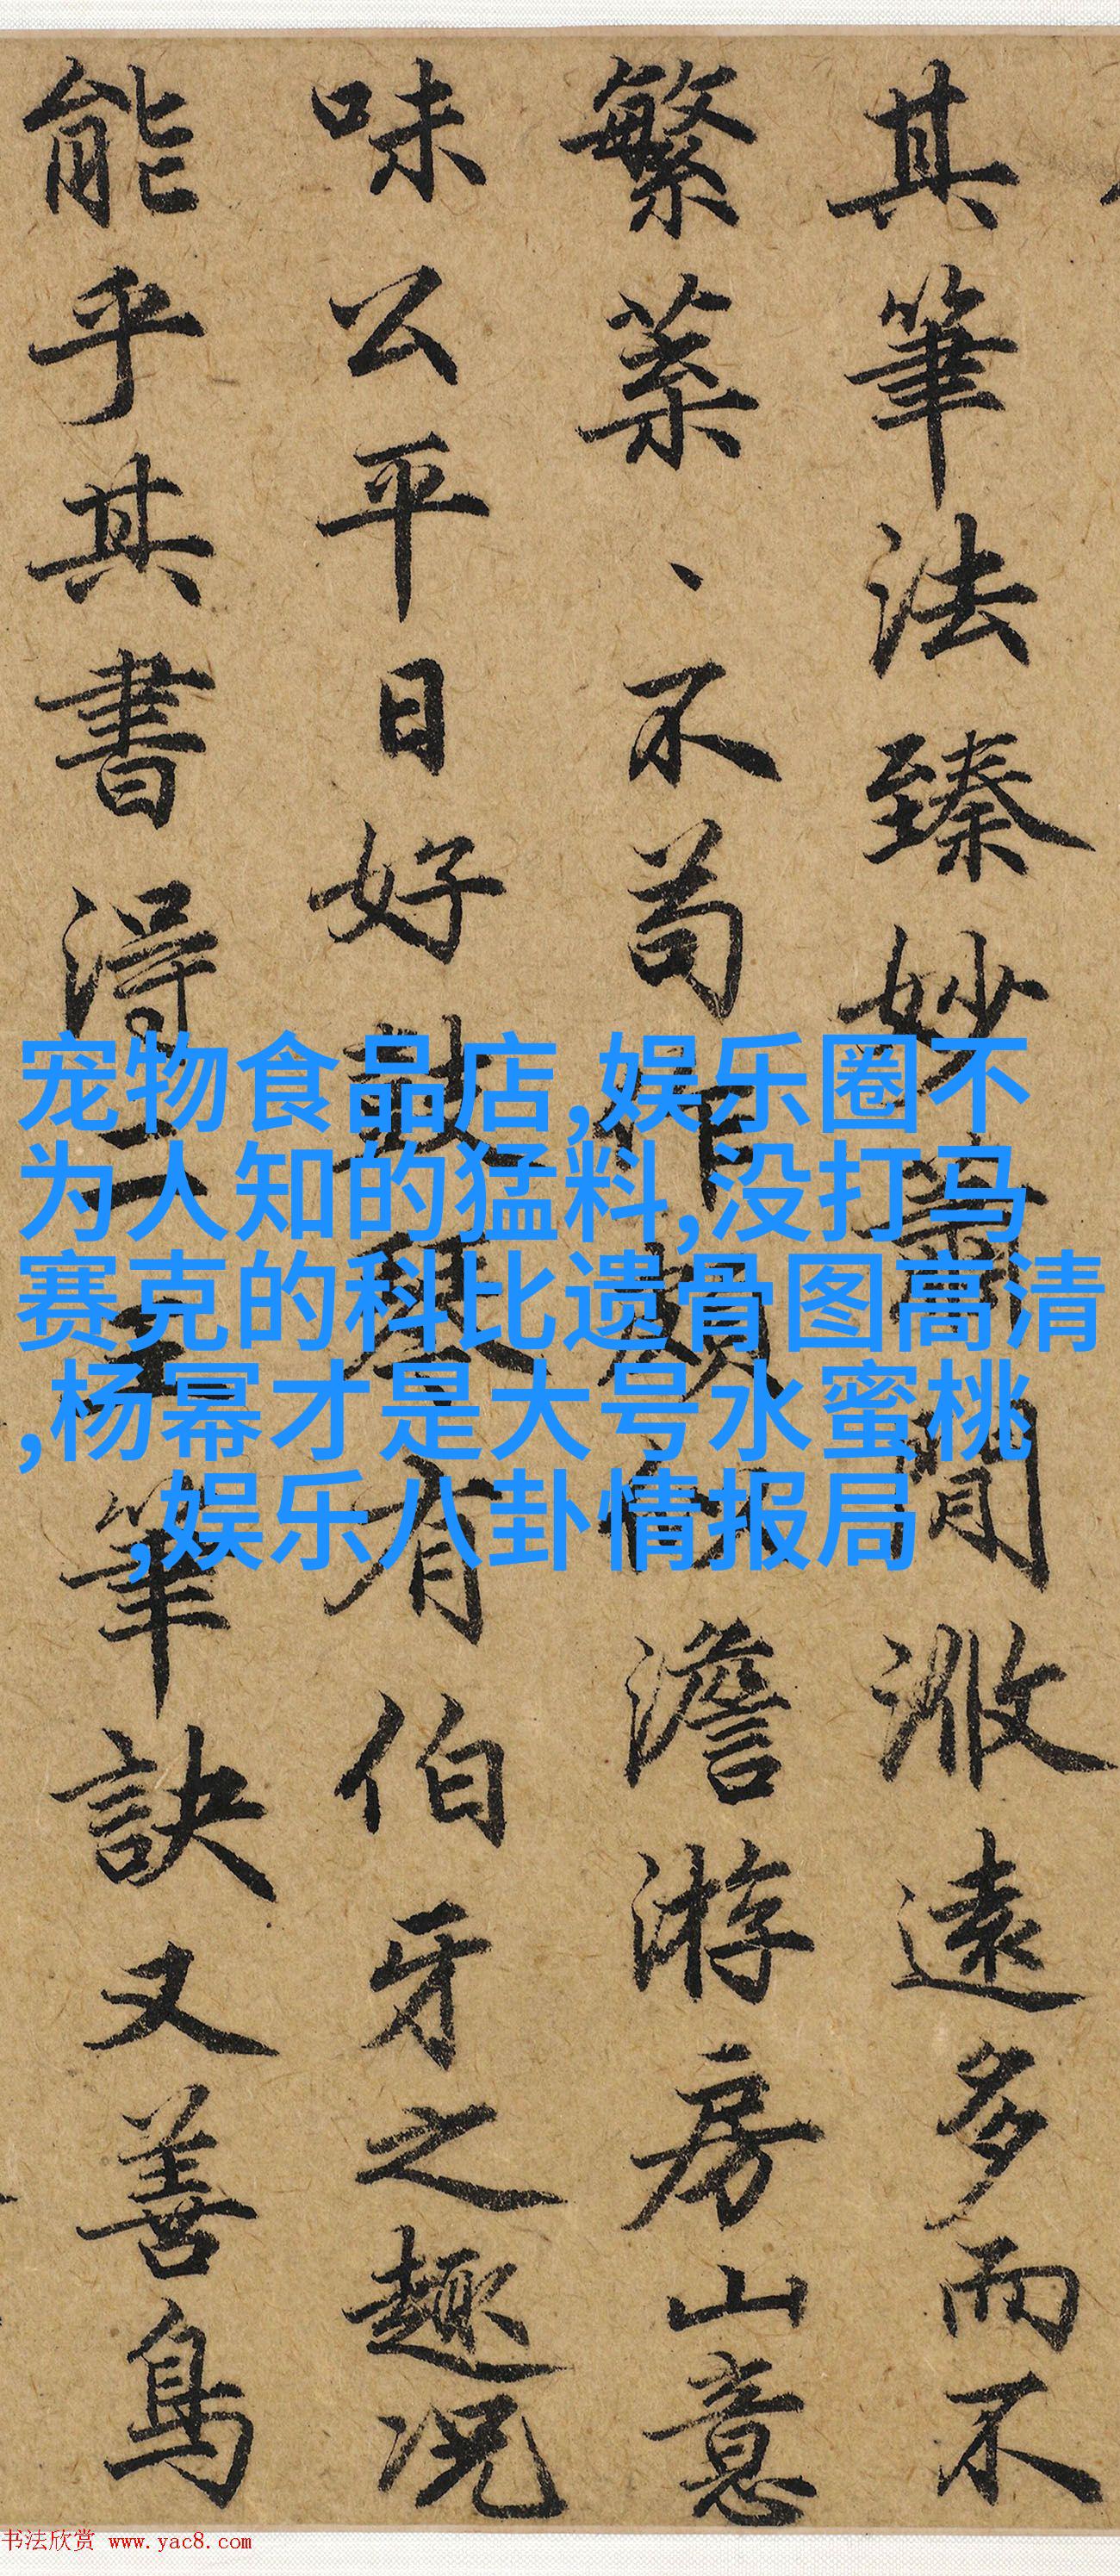 其筆法臻妙
閒漎遠多而不
繁萦、不苟作
澹游房山意
味公平日好鼓琴有伯牙之趣况
能乎其書得二王筆訣又善鳥
宠物食品店,娱乐圈不
为人知的猛料,没打马
赛克的科比遗骨图高清
,杨幂才是大号水蜜桃
,娱乐八卦情报局
书法欣赏 www.yac8.com